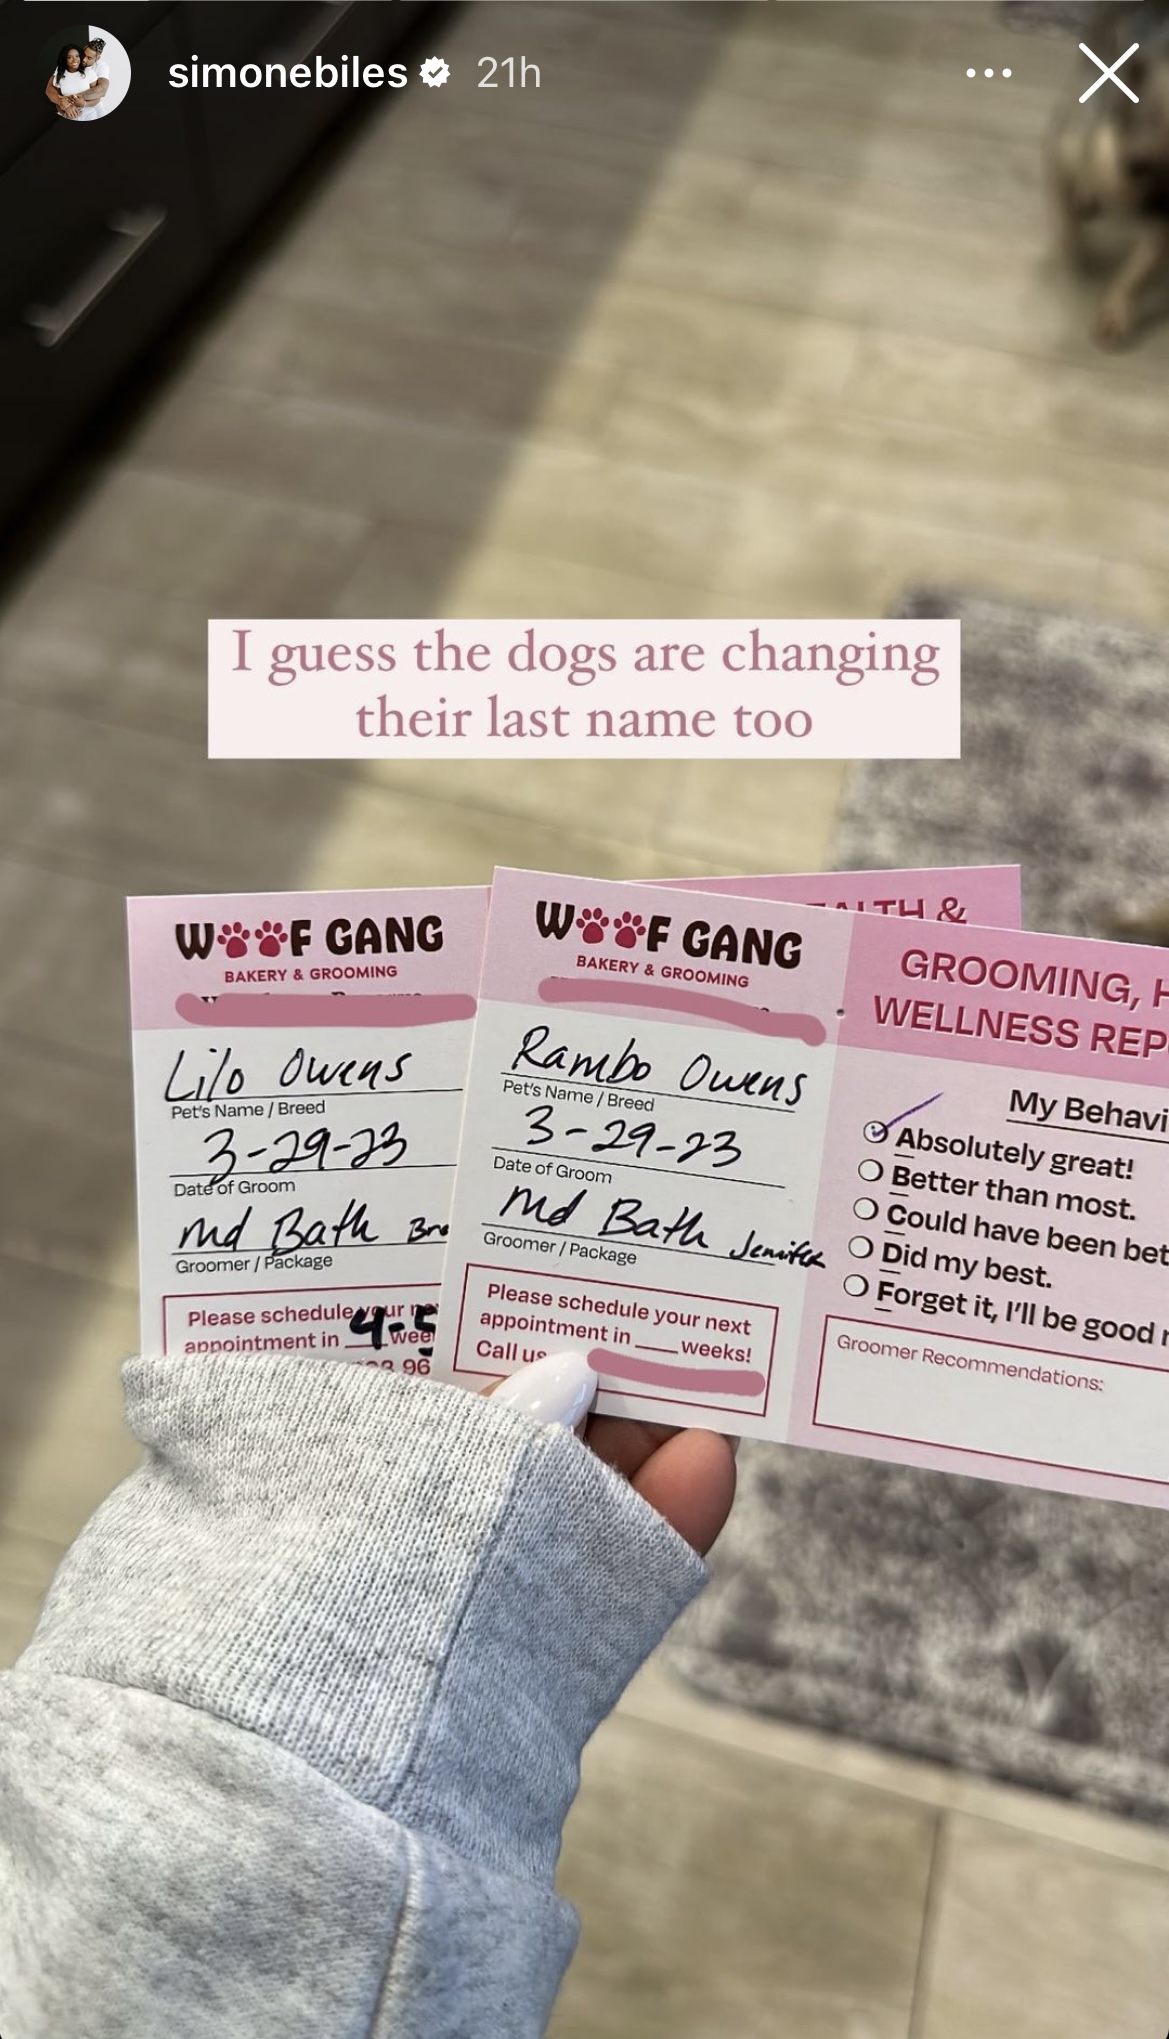 simonebiles 21h
I guess the dogs are changing
their last name too
WOOF GANG
BAKERY & GROOMING
Lilo Owens
Pet's Name / Breed
3-29-23
Date of Groom
Md Bath
Groomer / Package
Please schedule your
appointment in 4-5
96
WOOF GANG
BAKERY & GROOMING
Rambo Owens
Pet's Name / Breed
3-29-23
Date of Groom
Md Bath Jennifer
Groomer / Package
Please schedule your next
appointment in ___ weeks!
Call us
&
GROOMING,
WELLNESS
My
Absolutely great!
Better than most.
Could have been
Did my best.
Forget it, I'll be good
Groomer Recommendations: